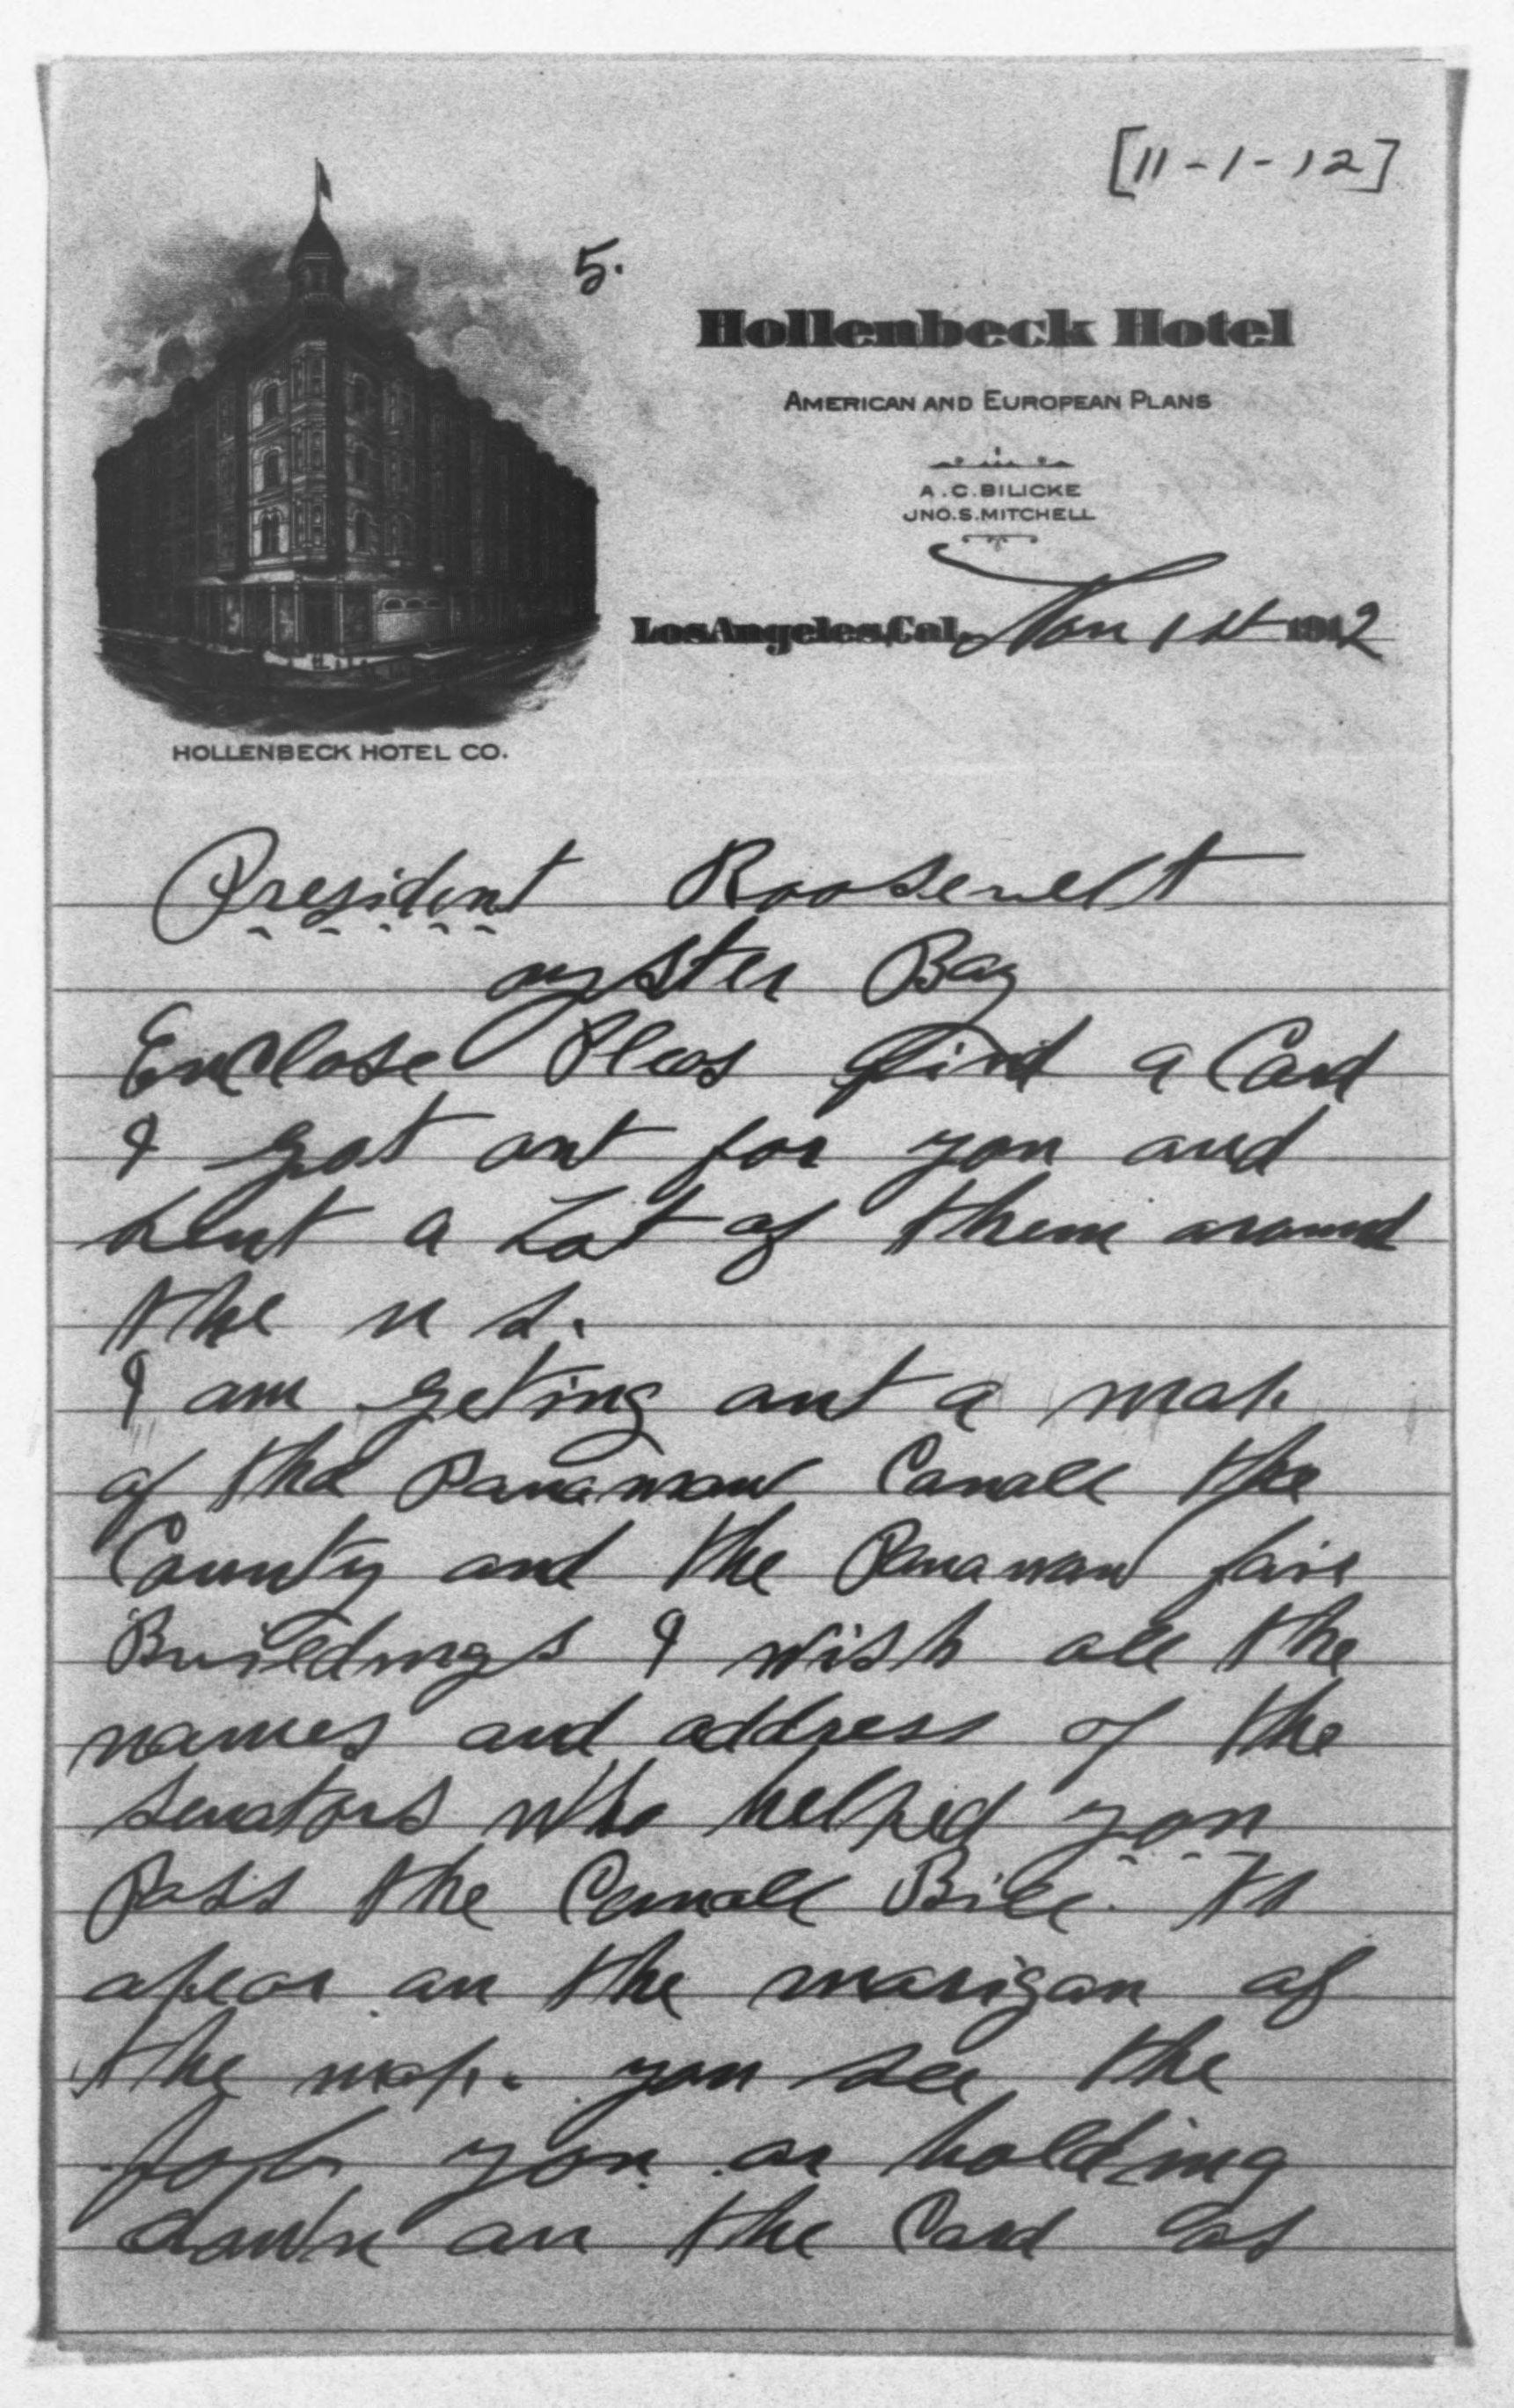 [11-1-12]
5.
Hollenbeck Hotel
American and European Plans
A.C. BILICKE
JNO. S. MITCHELL
Los Angeles, Cal. Nov 1st 1912
HOLLENBECK HOTEL CO.
President Roosevelt
oyster Bay
Enclose Pleas find a Card
I got out for you and
sent a Lot of them around
the u s.
I am geting out a map
of the Panamaw Canall the
County and the Panamaw fair
Buildings I wish all the
names and address of the
senators who helped you
Pass the Canall Bill. to
apear on the marigan of
the map. you see the
job you ar holding
down on the Card as